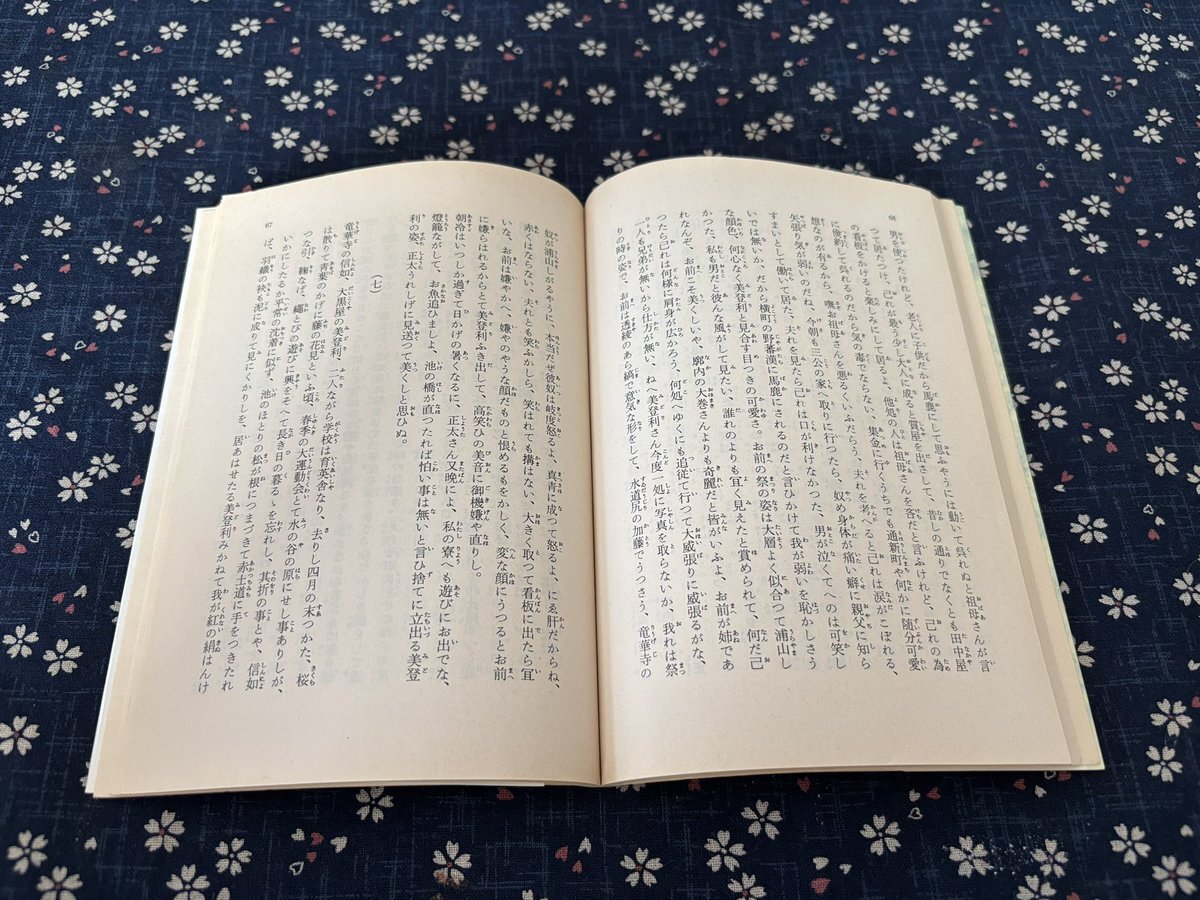 66
男を使つたけれど、老人に子供だから馬鹿にして思ふやうには動いて呉れぬと祖母さんが言
つて居たつけ、己れが最う少し大人に成ると質屋を出さして、昔しの通りでなくとも田中屋
の看板をかけると楽しみにして居るよ、他処の人は祖母さんを吝だと言ふけれど、己れの為
に倹約して呉れるのだから気の毒でならない、集金に行くうちでも通新町や何かに随分可愛
想なのが有るから、嘸お祖母さんを悪るくいふだらう、夫れを考へると己れは涙がこぼれる、
矢張り気が弱いのだね、今朝も三公の家へ取りに行つたら、奴め身体が痛い癖に親父に知ら
すまいとして働いて居た、夫れを見たら己れは口が利けなかつた、男が泣くてへのは可笑し
いでは無いか、だから横町の野蕃漢に馬鹿にされるのだと言ひかけて我が弱いを恥かしさう
な顔色、何心なく美登利と見合す目つきの可愛さ。お前の祭の姿は大層よく似合つて浦山し
かつた、私も男だと彼んな風がして見たい、誰れのよりも宜く見えたと賞められて、何だ己
れなんぞ、お前こそ美くしいや、廓内の大巻さんよりも奇麗だと皆がいふよ、お前が姉であ
つたら己れは何様に肩身が広かろう、何処へゆくにも追従て行つて大威張りに威張るがな、
一人も兄弟が無いから仕方が無い、ねへ美登利さん今度一処に写真を取らないか、我れは祭
りの時の姿で、お前は透綾のあら縞で意気な形をして、水道尻の加藤でうつさう、竜華寺の
奴が浦山しがるやうに、本当だぜ彼奴は岐度怒るよ、真青に成つて怒るよ、にゑ肝だからね、
赤くはならない、夫れとも笑ふかしら、笑はれても搆はない、大きく取つて看板に出たら宜
いな、お前は嫌やかへ、嫌やのやうな顔だものと恨めるもをかしく、変な顔にうつるとお前
に嫌らはれるからとて美登利ふき出して、高笑ひの美音に御機嫌や直りし。
朝冷はいつしか過ぎて日かげの暑くなるに、正太さん又晩によ、私の寮へも遊びにお出でな、
燈籠ながして、お魚追ひましよ、池の橋が直つたれば怕い事は無いと言ひ捨てに立出る美登
利の姿、正太うれしげに見送つて美くしと思ひぬ。
（七）
竜華寺の信如、大黒屋の美登利、二人ながら学校は育英舎なり、去りし四月の末つかた、桜
は散りて青葉のかげに藤の花見といふ頃、春季の大運動会とて水の谷の原にせし事ありしが、
つな引、鞠なげ、縄とびの遊びに興をそへて長き日の暮るゝを忘れし、其折の事とや、信如
いかにしたるか平常の沈着に似ず、池のほとりの松が根につまづきて赤土道に手をつきたれ
ば、羽織の袂も泥に成りて見にくかりしを、居あはせたる美登利みかねて我が紅の絹はんけ
67